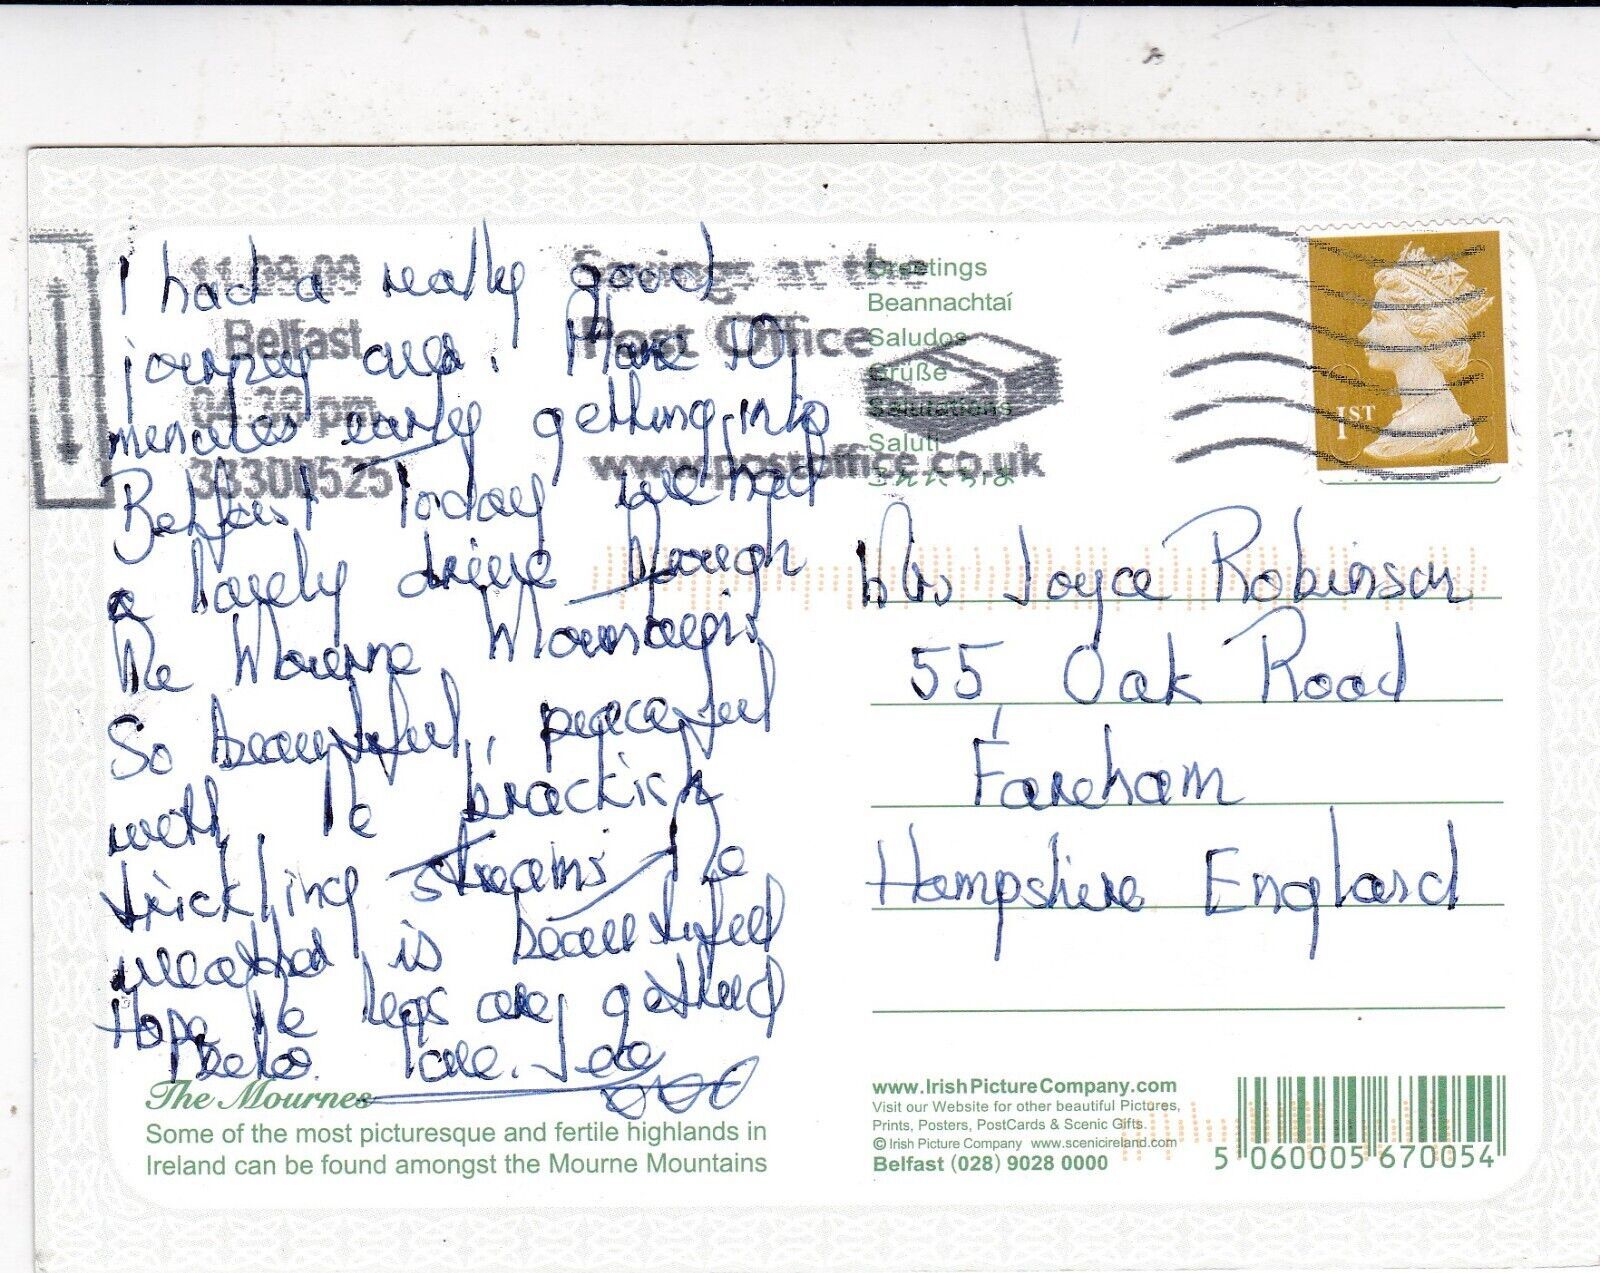 I had a really good
journey over. Plane 10
minutes early getting into
Belfast Today we had
a lovely drive through
The Mourne Mountains
So beautiful, peaceful
with the brackish
trickling streams The
weather is beautiful
Hope the legs are getting
Love
The Mournes
Some of the most picturesque and fertile highlands in
Ireland can be found amongst the Mourne Mountains
11.09.09
Belfast
04:38 pm
Savings at the
Post Office
www.postoffice.co.uk
Greetings
Beannachtaí
Saludos
Grüße
Salutations
Saluti
1ST
Mrs Joyce Robinson
55 Oak Road
Fareham
Hampshire England
www.IrishPictureCompany.com
Visit our Website for other beautiful Pictures,
Prints, Posters, PostCards & Scenic Gifts.
© Irish Picture Company www.scenicireland.com
Belfast (028) 9028 0000
5 060005 670054